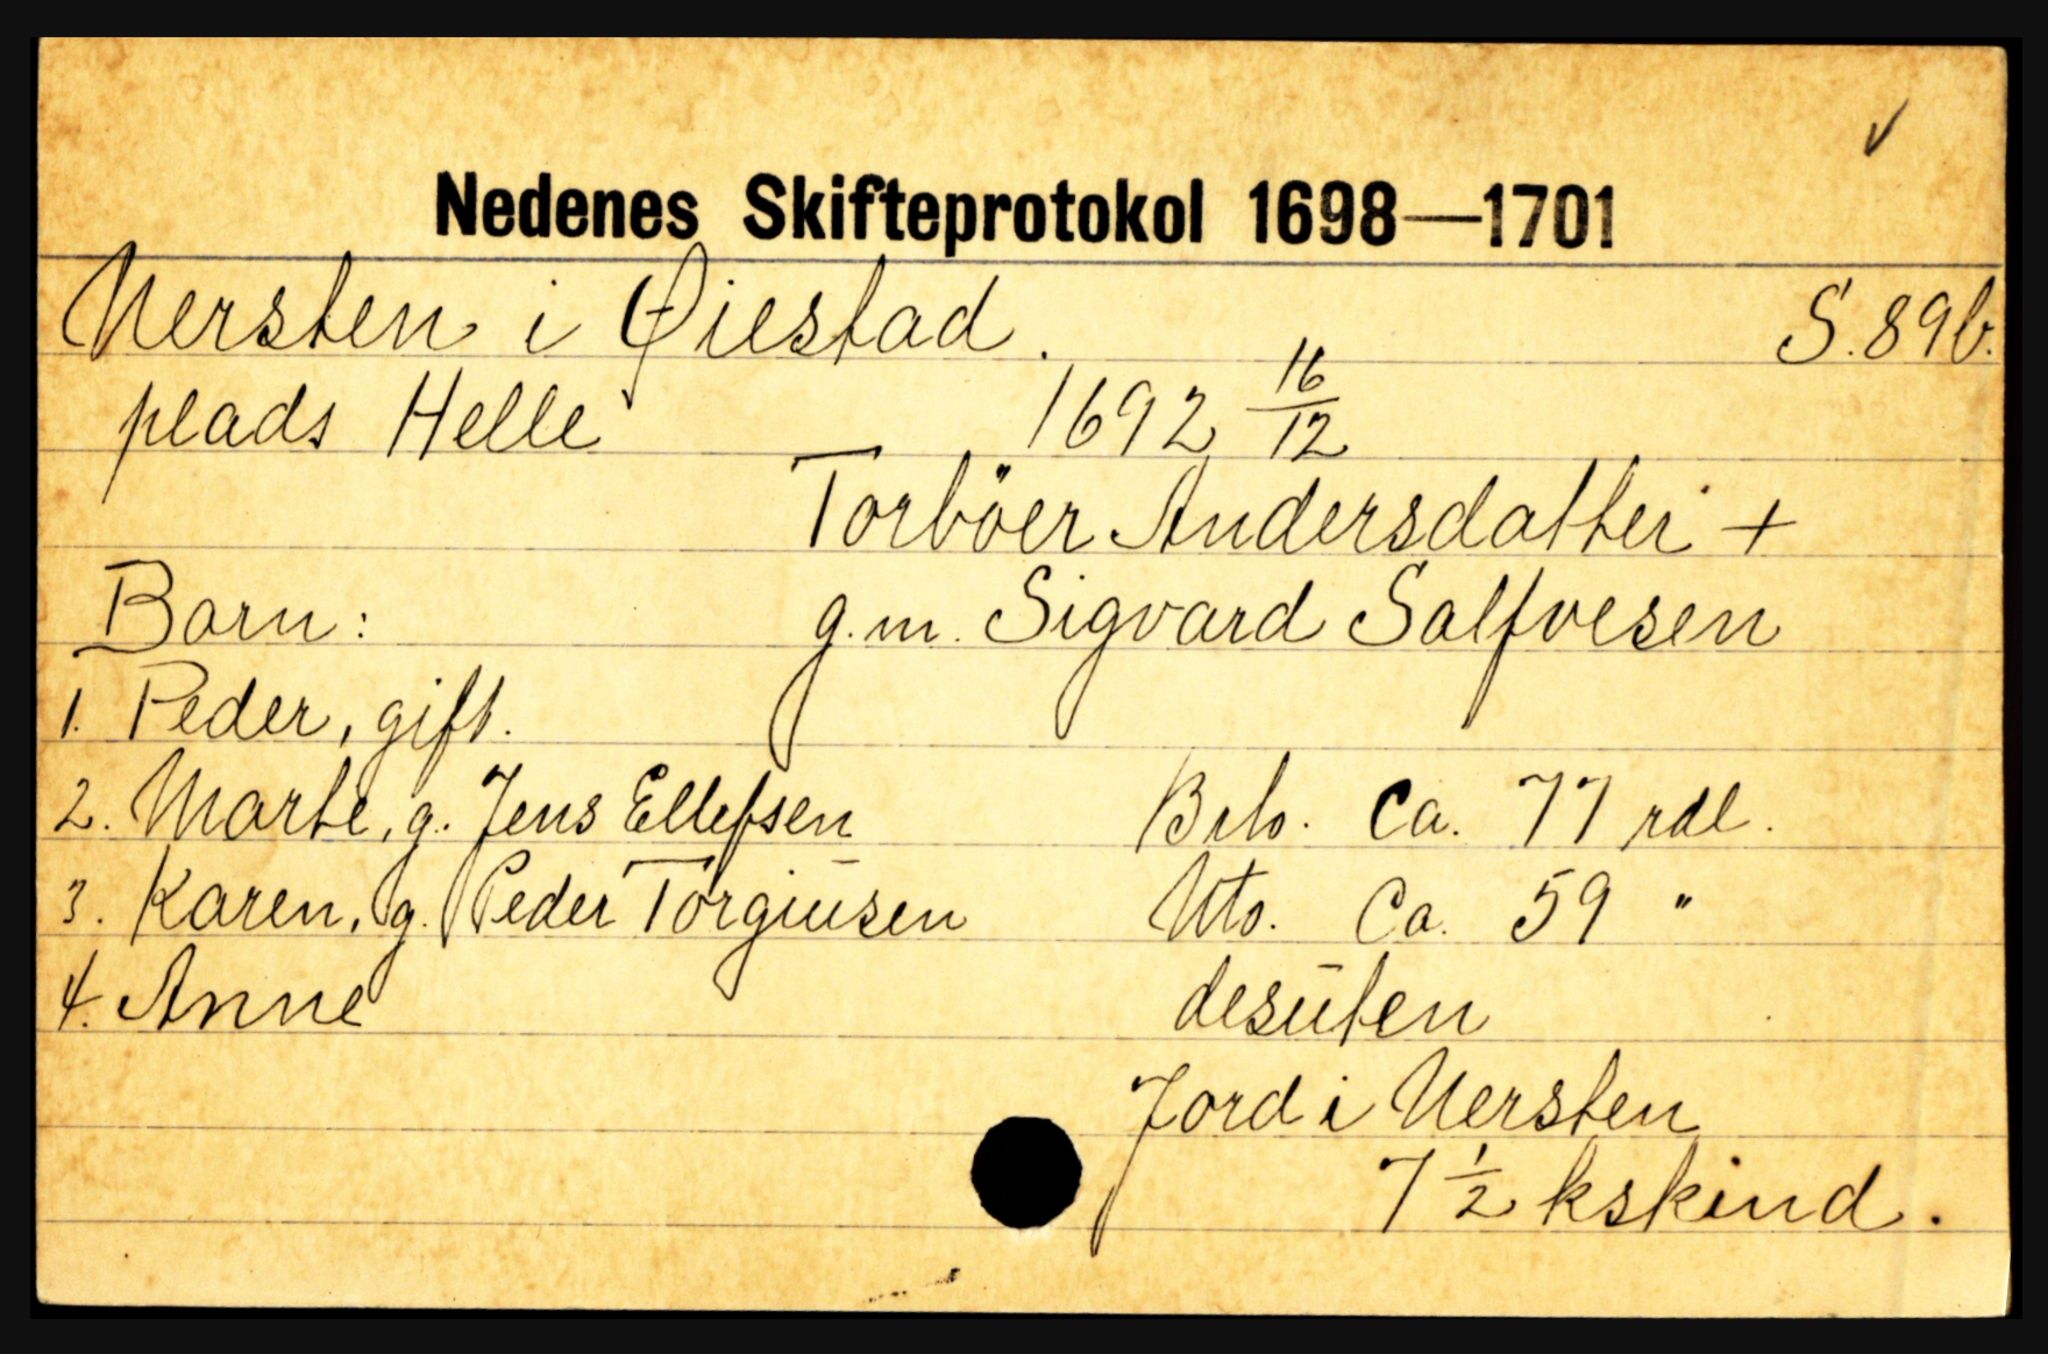 Nedenes Skifteprotokol 1698—1701
Nersten i Øiestad. S. 89b.
plads Helle 1692 16/12
Torböer Andersdatter +
Born: g.m. Sigvard Salfvesen
1. Peder, gift.
2. Marte, g. Jens Ellefsen Brlo. Ca. 77 rdl.
3. Karen, g. Peder Torgiusen Uto. Ca. 59 "
4. Anne desuten
Jord i Nersten
7 1/2 kskind.